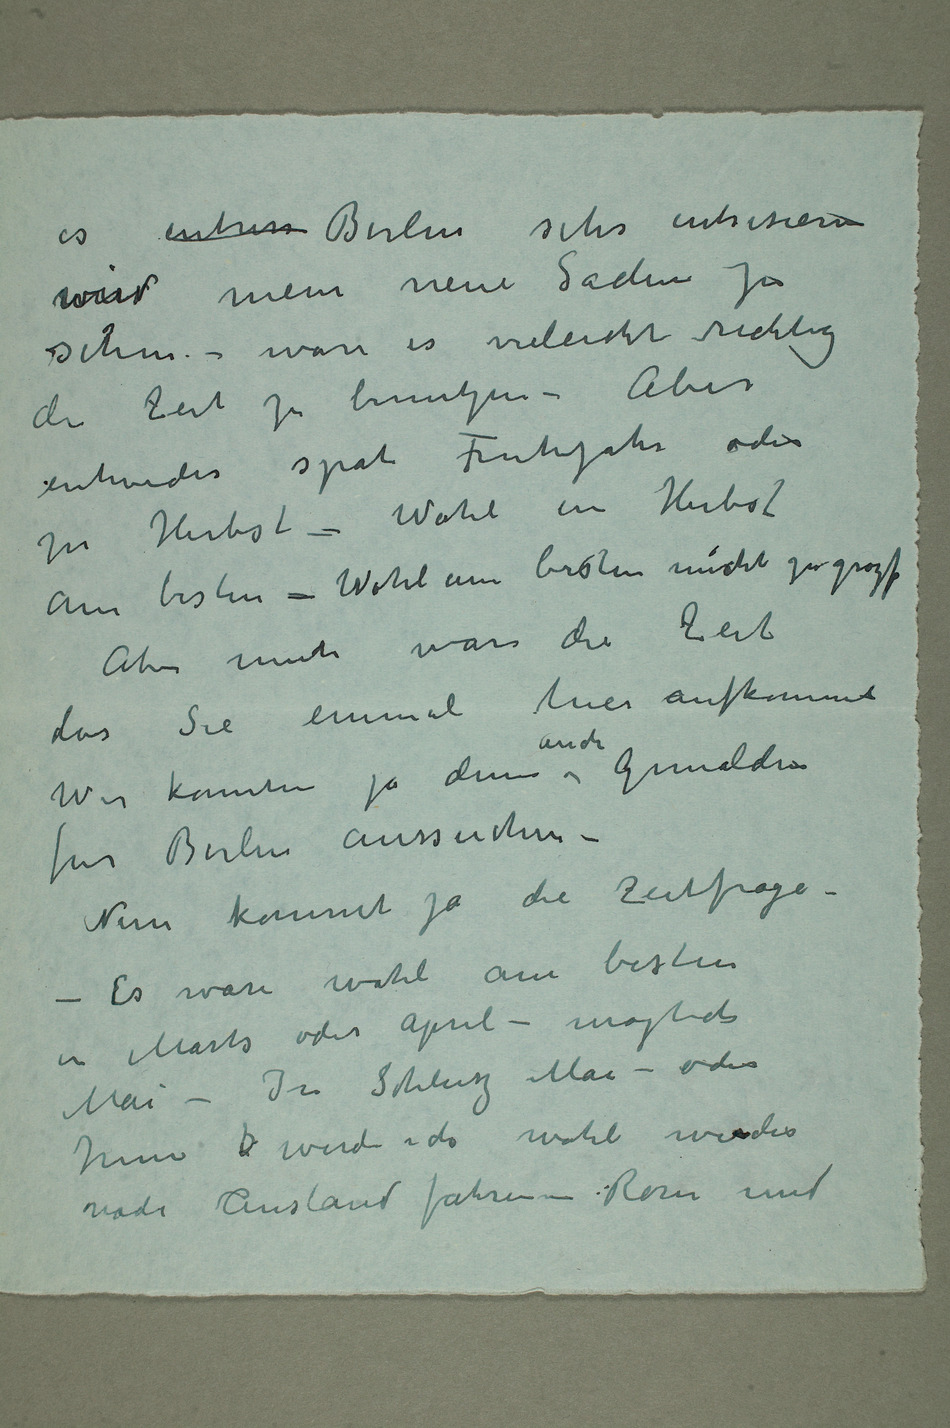 es entress Berlin sehr intresieren
wird mein neue Sachen zu
sehen. – wäre es vieleicht richtig
die Zeit zu benutzen – Aber
entweder spät Frühjahr oder
zu Herbst – Wohl im Herbst
am besten – Wohl am besten nicht zu gross
Aber nicht wars die Zeit
das Sie einmal hier aufkommt
Wir konnten ja denn auch Gemälden
für Berlin aussuchen –
Nun kommt ja die Zeitfrage –
– Es wäre wohl am besten
in Marts oder April – möglich
Mai – In Schlusz Mai – oder
Juni werde ich wohl wieder
nach Ausland fahren – Rom und